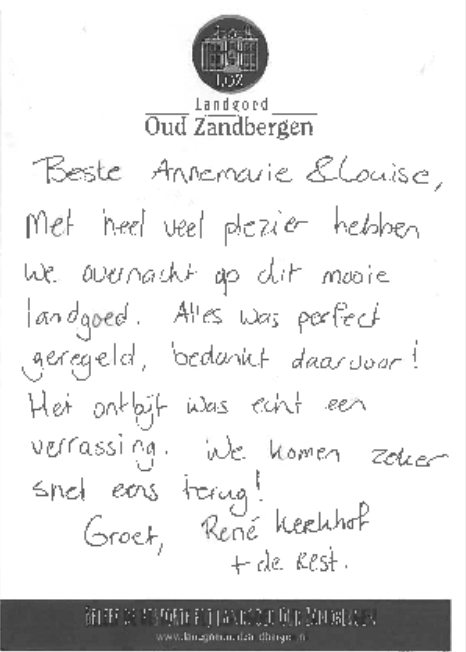 LOZ
Landgoed
Oud Zandbergen
Beste Annemarie & Louise,
Met heel veel plezier hebben
we overnacht op dit mooie
landgoed. Alles was perfect
geregeld, bedankt daarvoor!
Het ontbijt was echt een
verrassing. We komen zeker
snel eens terug!
Groet, René Kerkhof
+ de rest.
LANDGOED OUD ZANDBERGEN